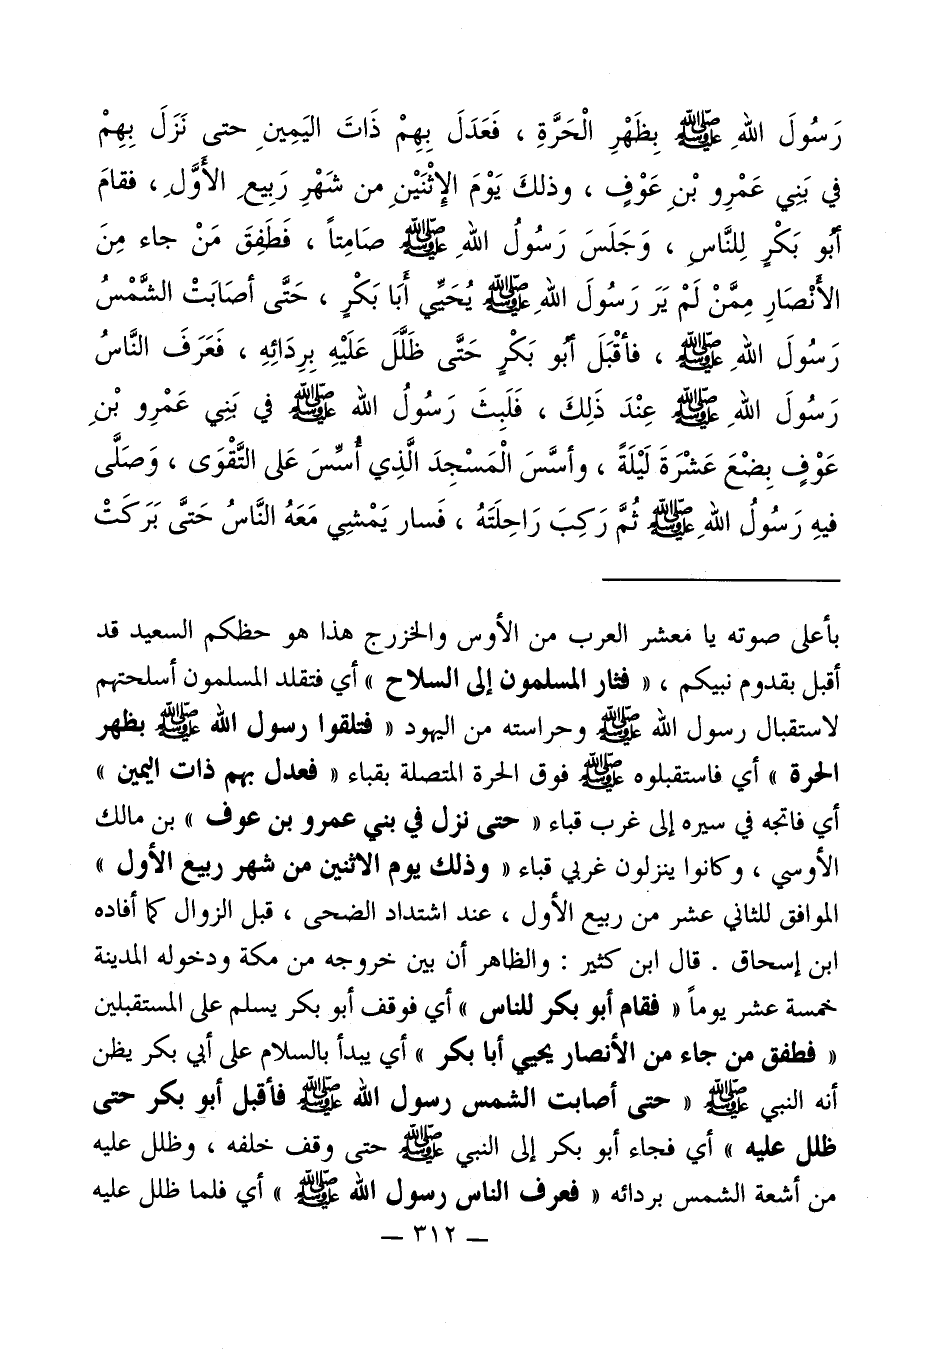 رَسُولَ اللهِ ﷺ بِظَهْرِ الْحَرَّةِ ، فَعَدَلَ بِهِمْ ذَاتَ اليَمِينِ حتى نَزَلَ بِهِمْ
في بَنِي عَمْرِو بْنِ عَوْفٍ ، وذلكَ يَوْمَ الإِثْنَيْنِ من شَهْرِ رَبِيعِ الأَوَّلِ ، فقامَ
أبُو بَكْرٍ لِلنَّاسِ ، وَجَلَسَ رَسُولُ اللهِ ﷺ صَامِتاً ، فَطَفِقَ مَنْ جاء مِنَ
الأَنْصَارِ مِمَّنْ لَمْ يَرَ رَسُولَ اللهِ ﷺ يُحَيِّي أَبَا بَكْرٍ ، حَتَّى أصَابَتْ الشَّمْسُ
رَسُولَ اللهِ ﷺ ، فأقْبَلَ أبُو بَكْرٍ حَتَّى ظَلَّلَ عَلَيْهِ بِرِدَائِهِ ، فَعَرَفَ النَّاسُ
رَسُولَ اللهِ ﷺ عِنْدَ ذَلِكَ ، فَلَبِثَ رَسُولُ اللهِ ﷺ في بَنِي عَمْرِو بْنِ
عَوْفٍ بِضْعَ عَشْرَةَ لَيْلَةً ، وأسَّسَ الْمَسْجِدَ الَّذِي أُسِّسَ عَلى التَّقْوَى ، وَصَلَّى
فيهِ رَسُولُ اللهِ ﷺ ثُمَّ رَكِبَ رَاحِلَتَهُ ، فَسار يَمْشِي مَعَهُ النَّاسُ حَتَّى بَرَكَتْ
بأعلى صوته يا معشر العرب من الأوس والخزرج هذا هو حظكم السعيد قد
أقبل بقدوم نبيكم ، « فثار المسلمون إلى السلاح » أي فتقلد المسلمون أسلحتهم
لاستقبال رسول الله ﷺ وحراسته من اليهود « فتلقوا رسول الله ﷺ بظهر
الحرة » أي فاستقبلوه ﷺ فوق الحرة المتصلة بقباء « فعدل بهم ذات اليمين »
أي فاتجه في سيره إلى غرب قباء « حتى نزل في بني عمرو بن عوف » بن مالك
الأوسي ، وكانوا ينزلون غربي قباء « وذلك يوم الاثنين من شهر ربيع الأول »
الموافق للثاني عشر من ربيع الأول ، عند اشتداد الضحى ، قبل الزوال كما أفاده
ابن إسحاق . قال ابن كثير : والظاهر أن بين خروجه من مكة ودخوله المدينة
خمسة عشر يوماً « فقام أبو بكر للناس » أي فوقف أبو بكر يسلم على المستقبلين
« فطفق من جاء من الأنصار يحيي أبا بكر » أي يبدأ بالسلام على أبي بكر يظن
أنه النبي ﷺ « حتى أصابت الشمس رسول الله ﷺ فأقبل أبو بكر حتى
ظلل عليه » أي فجاء أبو بكر إلى النبي ﷺ حتى وقف خلفه ، وظلل عليه
من أشعة الشمس بردائه « فعرف الناس رسول الله ﷺ » أي فلما ظلل عليه
— ٣١٢ —